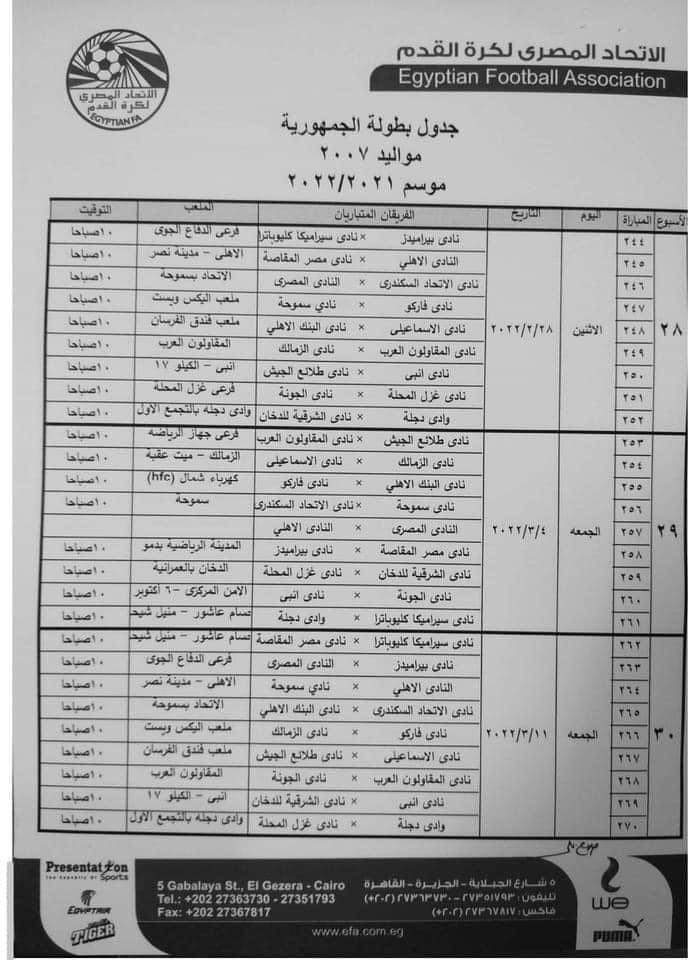 الاتحاد المصرى لكرة القدم
Egyptian Football Association
الاتحاد المصرى
لكرة القدم
EGYPTIAN FA
جدول بطولة الجمهورية
مواليد ٢٠٠٧
موسم ٢٠٢٢/٢٠٢١
الأسبوع المباراة اليوم التاريخ الفريقان المتباريان الملعب التوقيت
٢٨ الاثنين ٢٠٢٢/٢/٢٨
٢٤٤ نادى بيراميدز × نادى سيراميكا كليوباترا فرعى الدفاع الجوى ١٠صباحا
٢٤٥ النادي الأهلي × نادى مصر المقاصة الاهلى - مدينة نصر ١٠صباحا
٢٤٦ نادى الاتحاد السكندرى × النادى المصرى الاتحاد بسموحة ١٠صباحا
٢٤٧ نادى فاركو × نادي سموحة ملعب اليكس ويست ١٠صباحا
٢٤٨ نادى الاسماعيلى × نادى البنك الاهلي ملعب فندق الفرسان ١٠صباحا
٢٤٩ نادى المقاولون العرب × نادى الزمالك المقاولون العرب ١٠صباحا
٢٥٠ نادى انبى × نادى طلائع الجيش انبى - الكيلو ١٧ ١٠صباحا
٢٥١ نادى غزل المحلة × نادى الجونة فرعى غزل المحلة ١٠صباحا
٢٥٢ وادى دجلة × نادى الشرقية للدخان وادى دجله بالتجمع الأول ١٠صباحا
٢٩ الجمعه ٢٠٢٢/٣/٤
٢٥٣ نادى طلائع الجيش × نادى المقاولون العرب فرعى جهاز الرياضه ١٠صباحا
٢٥٤ نادى الزمالك × نادى الاسماعيلى الزمالك - ميت عقبة ١٠صباحا
٢٥٥ نادى البنك الأهلي × نادى فاركو كهرباء شمال (hfc) ١٠صباحا
٢٥٦ نادى سموحة × نادى الاتحاد السكندرى سموحة ١٠صباحا
٢٥٧ النادى المصرى × النادى الاهلي
٢٥٨ نادى مصر المقاصة × نادى بيراميدز المدينة الرياضية بدمو ١٠صباحا
٢٥٩ نادى الشرقية للدخان × نادى غزل المحلة الدخان بالعمرانية ١٠صباحا
٢٦٠ نادى الجونة × نادى انبى الامن المركزى - ٦ أكتوبر ١٠صباحا
٢٦١ نادى سيراميكا كليوباترا × وادى دجلة عصام عاشور - منيل شيحة ١٠صباحا
٣٠ الجمعه ٢٠٢٢/٣/١١
٢٦٢ نادى سيراميكا كليوباترا × نادى مصر المقاصة عصام عاشور - منيل شيحة ١٠صباحا
٢٦٣ نادى بيراميدز × النادى المصرى فرعى الدفاع الجوى ١٠صباحا
٢٦٤ النادى الأهلي × نادي سموحة الاهلى - مدينة نصر ١٠صباحا
٢٦٥ نادى الاتحاد السكندرى × نادى البنك الاهلي الاتحاد بسموحة ١٠صباحا
٢٦٦ نادى فاركو × نادى الزمالك ملعب اليكس ويست ١٠صباحا
٢٦٧ نادى الاسماعيلى × نادى طلائع الجيش ملعب فندق الفرسان ١٠صباحا
٢٦٨ نادى المقاولون العرب × نادى الجونة المقاولون العرب ١٠صباحا
٢٦٩ نادى انبى × نادى الشرقية للدخان انبى - الكيلو ١٧ ١٠صباحا
٢٧٠ وادى دجلة × نادى غزل المحلة وادى دجله بالتجمع الأول ١٠صباحا
Presentation
Sports
EGYPTAIR
TIGER
5 Gabalaya St., El Gezera - Cairo
Tel.: +202 27363730 - 27351793
Fax: +202 27367817
٥ شارع الجبلاية - الجزيرة - القاهرة
تليفون : ٢٧٣٥١٧٩٣ - ٢٧٣٦٣٧٣٠ (٢٠٢+)
فاكس : ٢٧٣٦٧٨١٧ (٢٠٢+)
www.efa.com.eg
we
PUMA